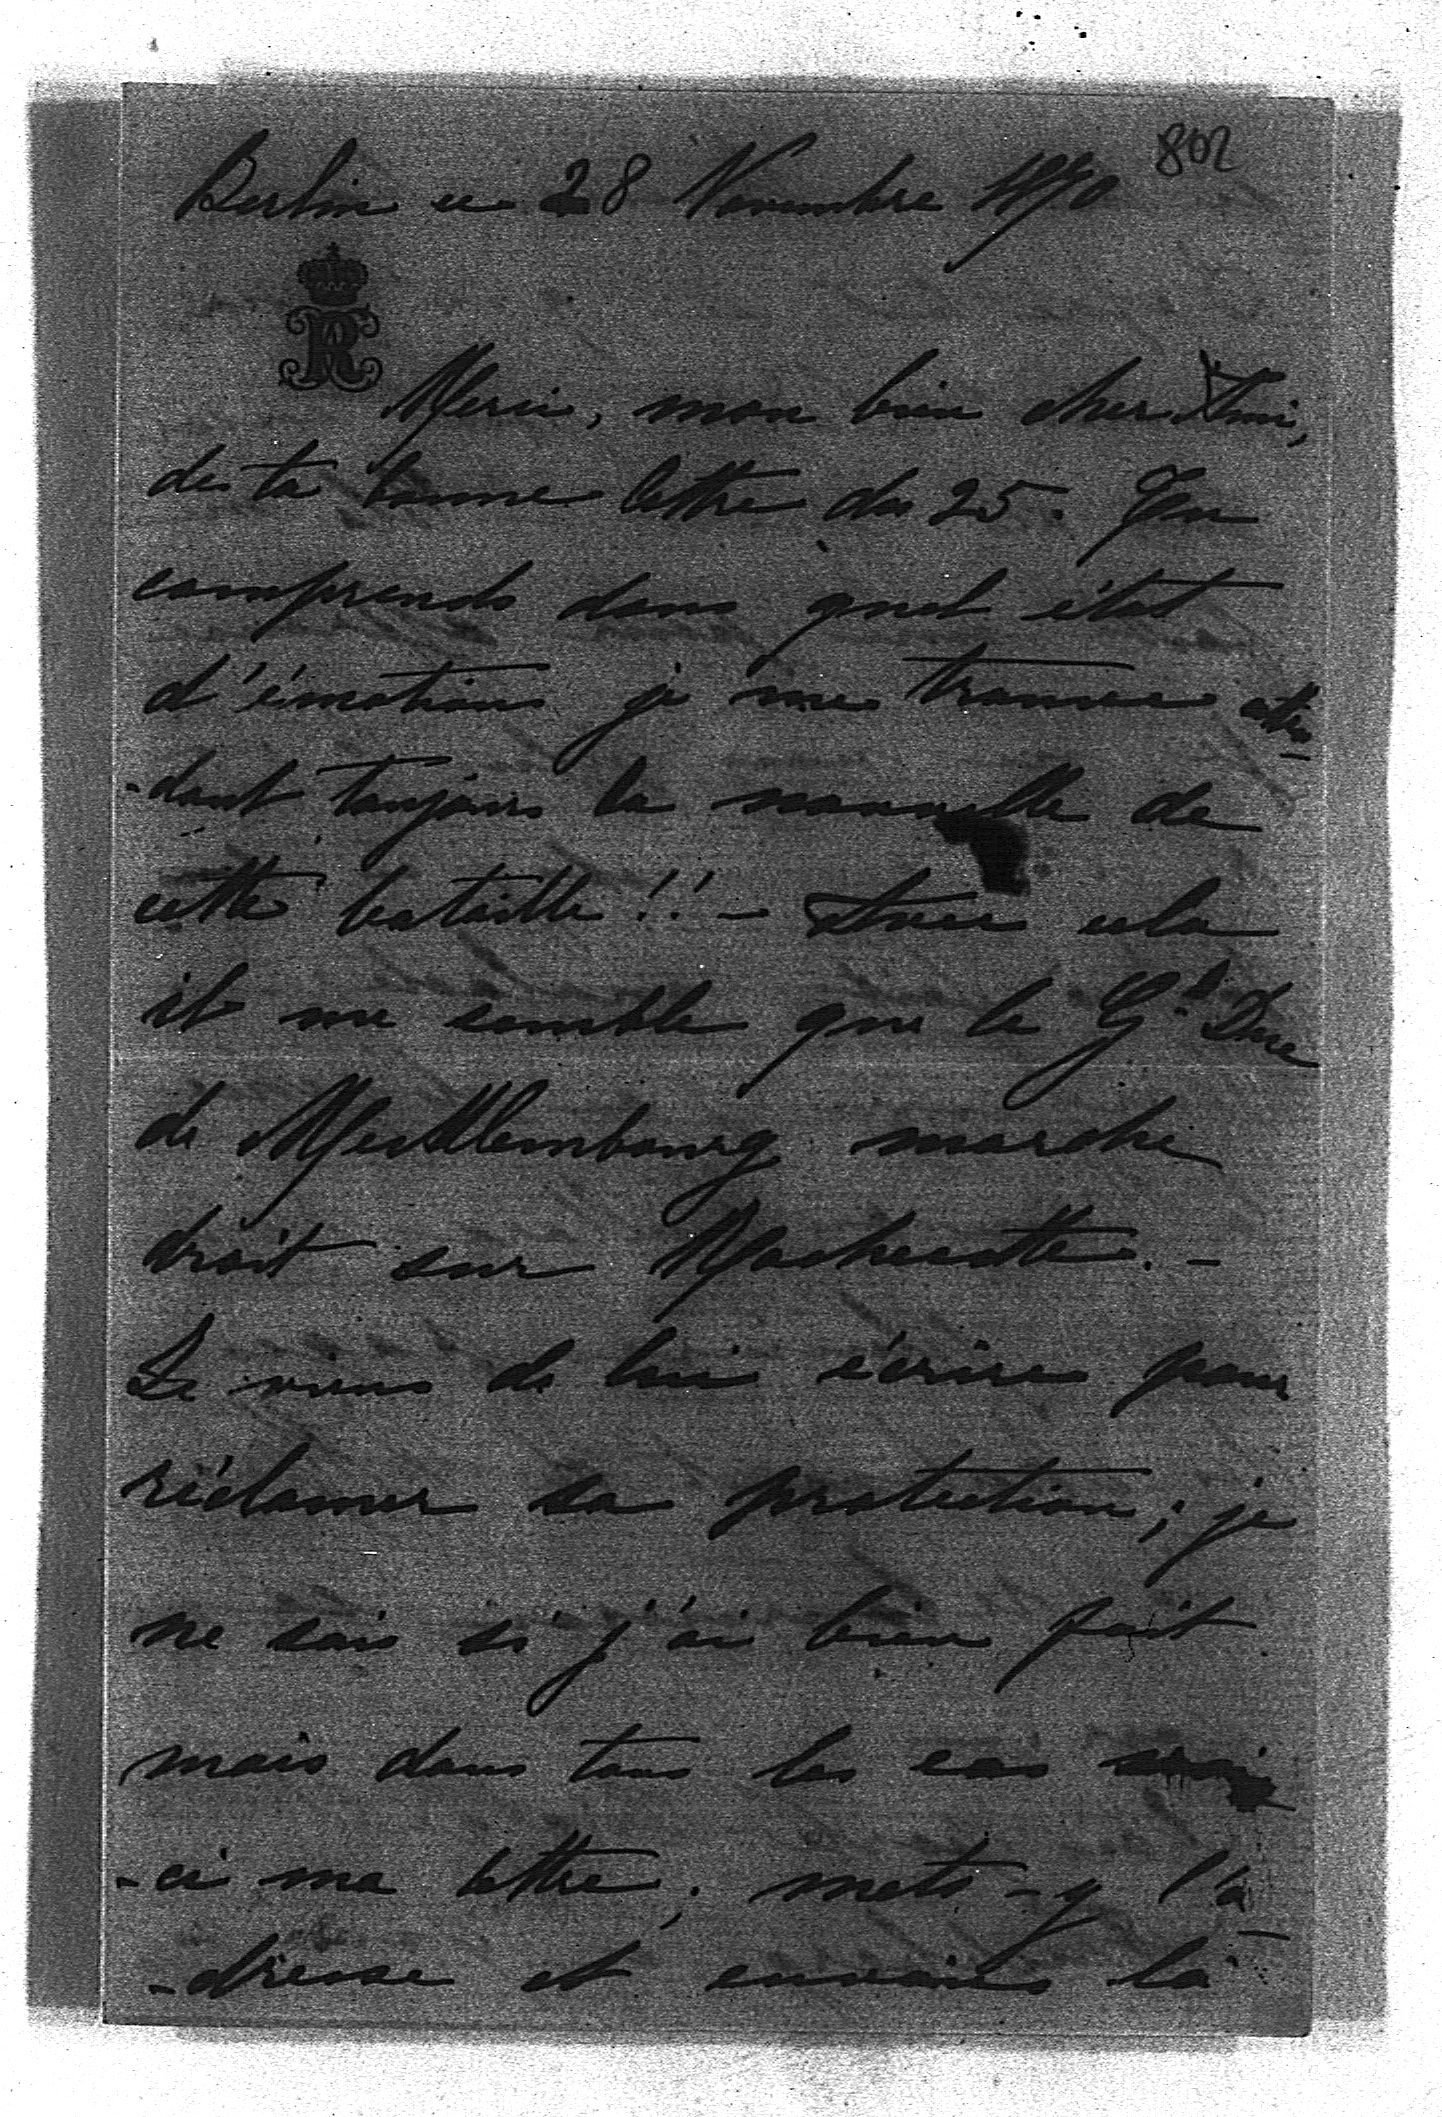 802
Berlin ce 28 Novembre 1870
R
Merci, mon bien cher Ami,
de ta bonne lettre du 25. Tu
comprends dans quel état
d'émotion je me trouve atten
-dant toujours la nouvelle de
cette bataille!! - Avec cela
il me semble que le Gd Duc
de Mecklembourg marche
droit sur Rochecotte. -
Je viens de lui écrire pour
réclamer sa protection; je
ne sais si j'ai bien fait
mais dans tous les cas voi
-ci ma lettre; mets-y l'a
-dresse et envoies la